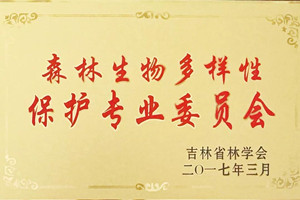 森林生物多样性
保护专业委员会
吉林省林学会
二〇一七年三月